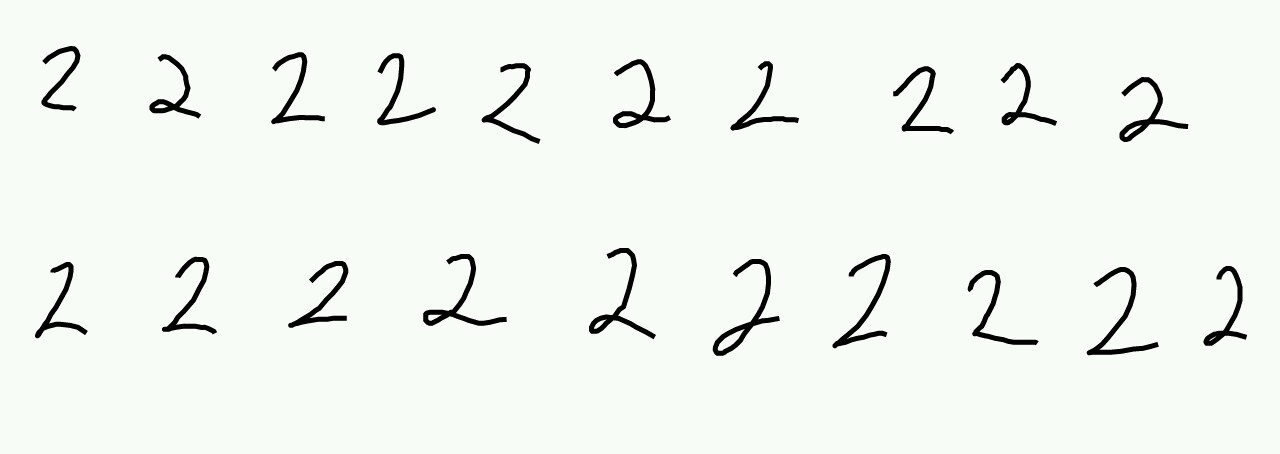 2 2 2 2 2 2 2 2 2 2
2 2 2 2 2 2 2 2 2 2